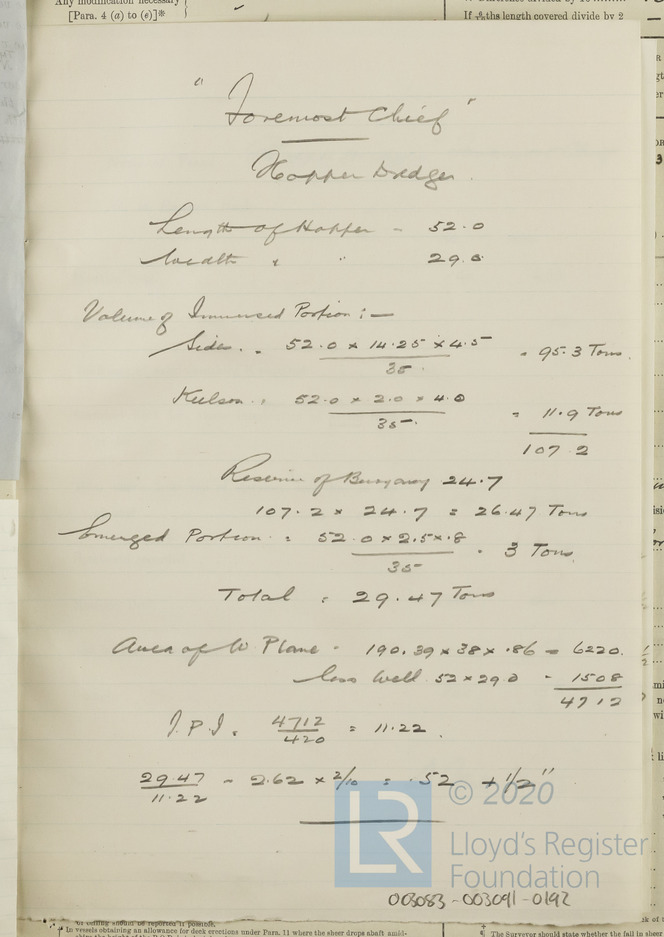 Any modification necessary
[Para. 4 (a) to (e)]*
If 6/10ths length covered divide by 2
" Foremost Chief "
Hopper Dredger.
Length of Hopper - 52.0
Width " " 29.0
Volume of Immersed Portion :-
Sides. = 52.0 x 14.25 x 4.5 / 35 = 95.3 Tons.
Keelson. = 52.0 x 2.0 x 4.0 / 35 = 11.9 Tons
107.2
Reserve of Buoyancy 24.7
107.2 x 24.7 = 26.47 Tons
Emerged Portion = 52.0 x 2.5 x .8 / 35 = 3 Tons
Total = 29.47 Tons
Area of W Plane - 190.39 x 38 x .86 = 6220.
less Well 52 x 29.0 - 1508
4712
T.P.I. = 4712 / 420 = 11.22.
29.47 / 11.22 = 2.62 x 2/10 = .52 + 1/2"
© 2020
LR
Lloyd's Register
Foundation
003083-003091-0192
of ceiling should be reported if possible.
† In vessels obtaining an allowance for deck erections under Para. 11 where the sheer drops abaft amid-
The Surveyor should state whether the fall in sheer